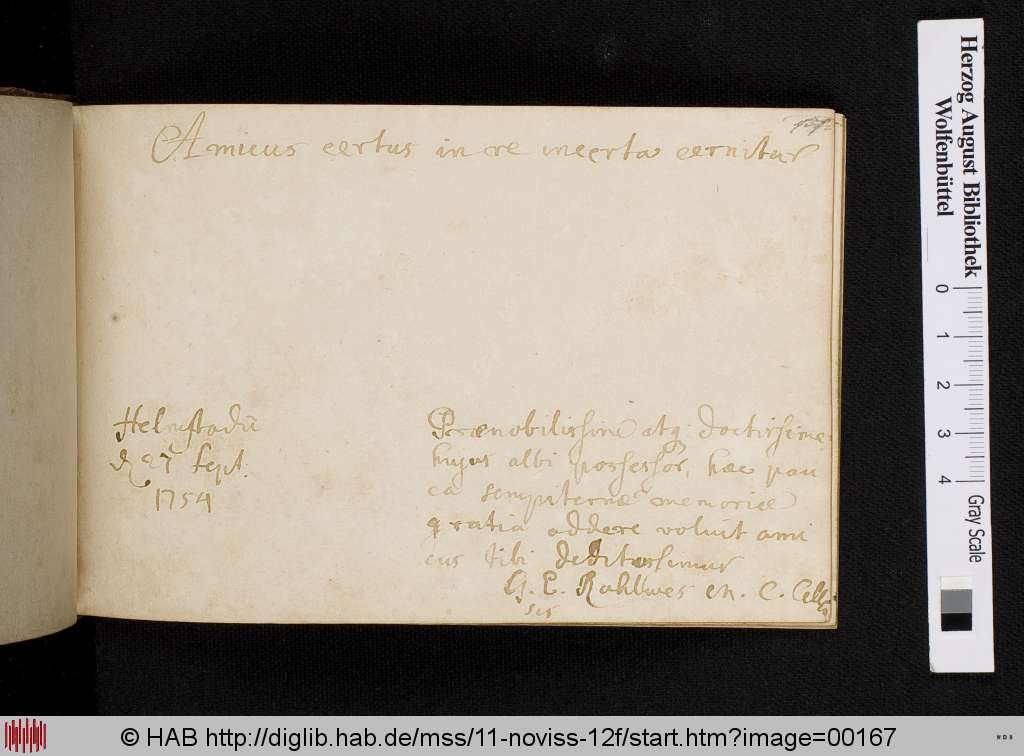 Amicus certus in re incerta cernitur
Helmstadii
d 27 Sept.
1754
Prænobilissime atq: doctissime
hujus albi possessor, hæc pau
ca sempiternæ memoriæ
gratia addere voluit ami
cus tibi deditissimus
G. E. Ruhlwes
ses
Herzog August Bibliothek
Wolfenbüttel
0
1
2
3
4
Gray Scale
© HAB http://diglib.hab.de/mss/11-noviss-12f/start.htm?image=00167
WDB